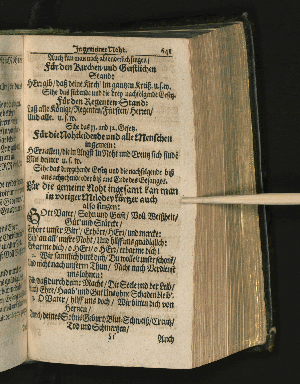 In gemeiner Noht. 641
Auch kan man noch absonderlich singen/
Für den Kirchen und Geistlichen
Stand:
HErr hilb/ daß deine Kirch' im gantzen Kreiß u.s.w.
Siehe das siebende und die drey nachfolgende Gesetz.
Für den Regenten-Stand:
Laß alle Könige/ Regenten/ Fürsten/ Herren/
Und alle. u. s. w.
Siehe das und Gesetz.
Für die Nohtleidende und alle Menschen
in gemein:
HErr allen/ die in Angst in Noht und Creutz sich finde
Mit deiner u. s. w.
Siehe das dreyzehende Gesetz und die nachfolgende biß
ans achtzehende oder biß ans Ende des Gesanges.
Für die gemeine Noht ingesamt kan man
in voriger Melodey kürtzer auch
also singen:
GOtt Vater/ Sohn und Geist/ Voll Weißheit/
Güt' und Stärcke/
Erhöre unsre Bitt'/ Erhör/ HErr/ und mercke:
Sih' an all' unsre Noht/ Und hilff uns gnädiglich:
Erbarme dich/ o HErr/ o HErr/ erbarme dich!
2. Wir sämtlich bitten dich/ Du wollest unser schonen/
Und nicht nach unserm Thun/ Nicht nach Verdienst
uns lohnen:
Hilff daß durch deine Macht/ Die Seele und der Leib/
Auch Ehre/ Haab' und Gut Und ohne Schaden bleib'.
3. O Vater/ hilff uns doch/ Wir bitten dich von
Hertzen/
Durch deines Sohns Geburt/ Blut-Schweiß/ Creutz/
Tod und Schmertzen/
Auch